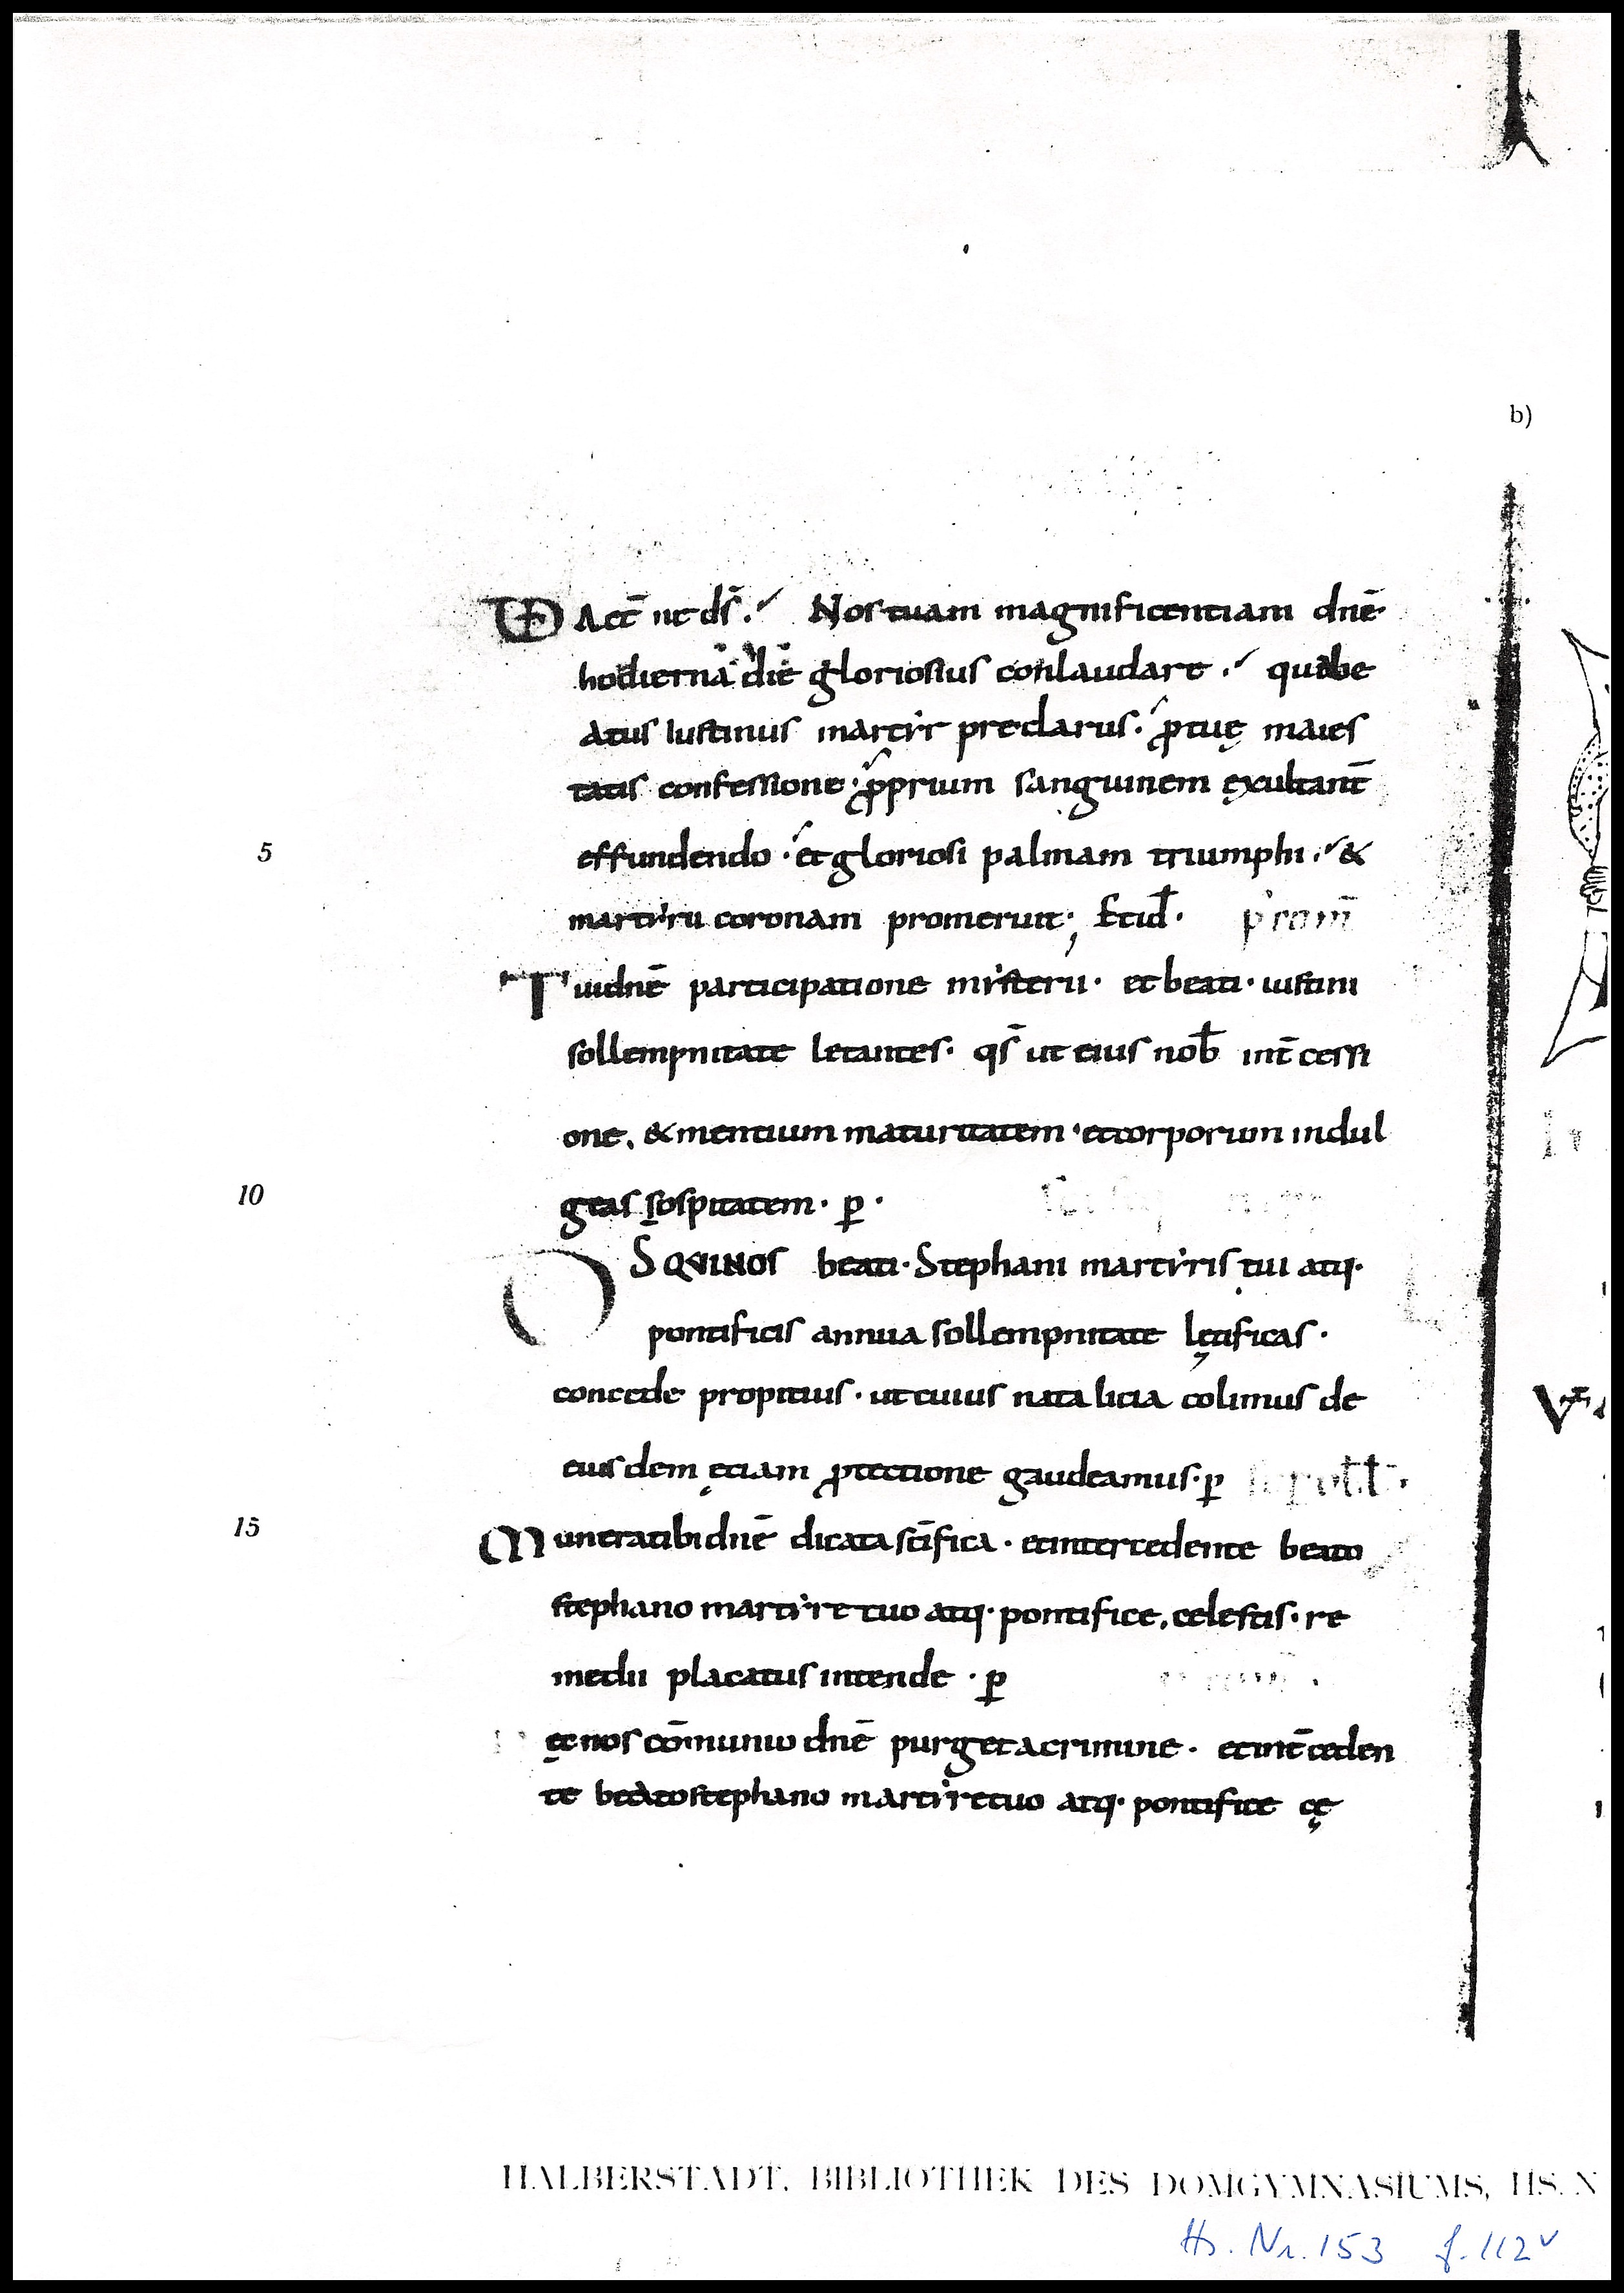 b)
VD Aet̄ ut ds̄. Nos tuam magnificentiam dnē
hodiernā diē gloriosius conlaudare. qua be
atus Iustinus martir preclarus. ꝓ tuę maies
tatis confessione. ꝓprium sanguinem ęxultant̄
5 effundendo. et gloriosi palmam triumphi. &
martirii coronam promeruit; Et id̄. prom̄
Tui dnē participatione misterii. et beati. iustini
sollempnitate letantes. qs̄ ut eius nob̄ int̄cessi
one. & mentium maturitatem. et corporum indul
10 geas sospitatem. ꝑ.
DS QVI NOS beati. Stephani martiris tui atq.
pontificis annua sollempnitate lętificas.
concede propitius. ut cuius natalicia colimus de
eiusdem ętiam ꝓtectione gaudeamus. ꝑ
15 Munera tibi dnē dicata sc̄ifica. et intercedente beato
stephano martire tuo atq. pontifice. celestis. re
medii placatus intende. ꝑ
ęc nos cōmunio dnē purget a crimine. et int̄ceden
te beato stephano martire tuo atq. pontifice cę
HALBERSTADT, BIBLIOTHEK DES DOMGYMNASIUMS, HS. N
Hs. Nr. 153 f. 112v